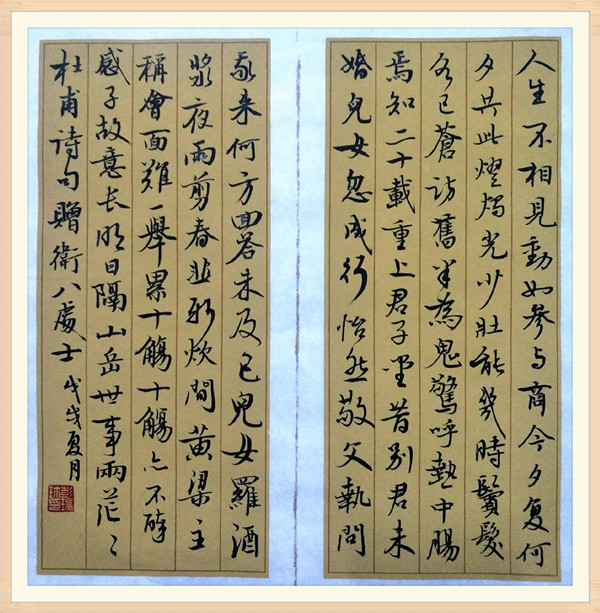 人生不相見動如參与商今夕复何
夕共此燈燭光少壯能幾時鬢髮
各已蒼訪舊半為鬼驚呼熱中腸
焉知二十載重上君子堂昔別君未
婚兒女忽成行怡然敬父執問
我来何方回答未及已兒女羅酒
漿夜雨剪春韭新炊間黄粱主
稱會面難一舉累十觴十觴亦不醉
感子故意长明日隔山岳世事兩茫々
杜甫詩句贈衛八處士 戊戌夏月